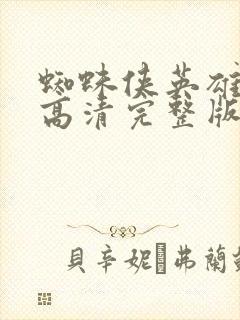 蜘蛛侠英雄
高清完整版
貝辛妮·弗蘭